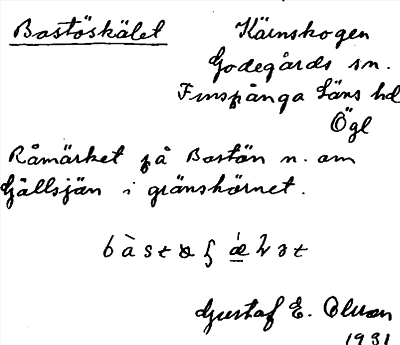 Bastöskälet
Kärnskogen
Godegårds sn.
Finspånga Läns hd
Ögl
Råmärket på Bastön n. om
Gållsjön i gränshörnet.
Gustaf E. Olsson
1931